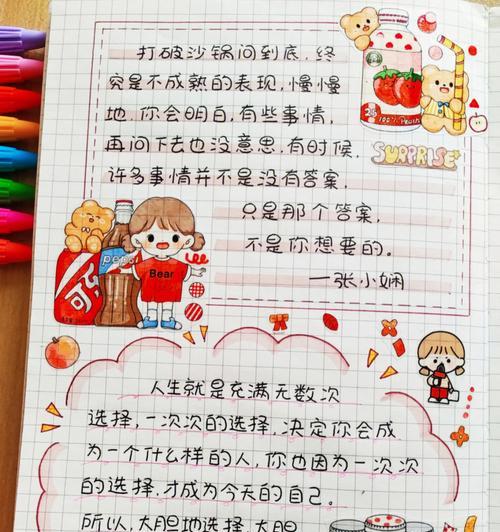 打破沙锅问到底，终
究是不成熟的表现，慢慢
地，你会明白，有些事情，
再问下去也没意思，有时候，
许多事情并不是没有答案，
只是那个答案，
不是你想要的。
—张小娴
100% Peach
SURPRISE
可
pepsi
Bear
人生就是充满无数次
选择，一次次的选择，决定你会成
为一个什么样的人，你也因为一次次
的选择，才成为今天的自己。
所以，大胆地选择，大胆